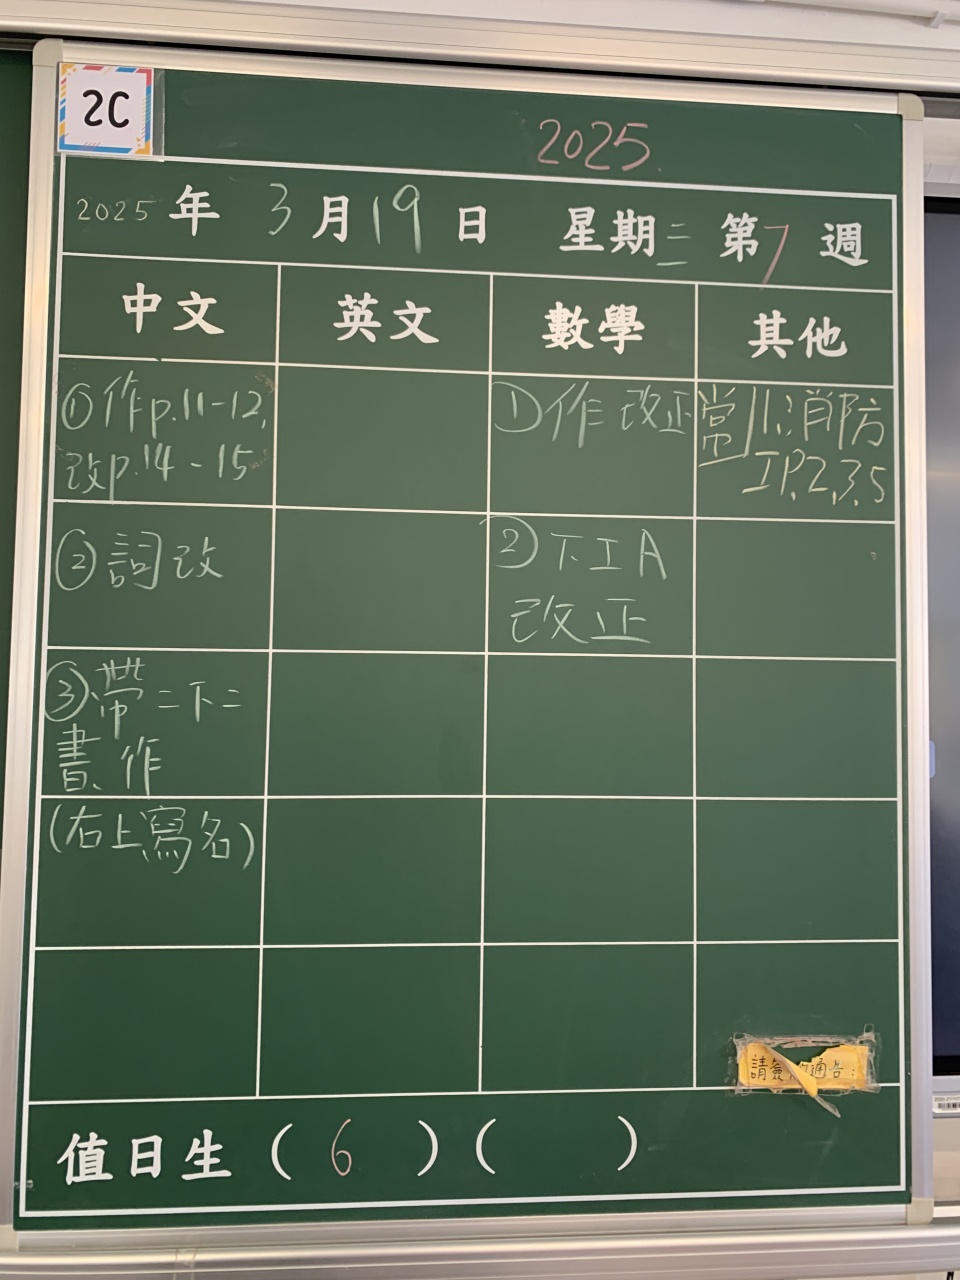 2C
2025
2025年 3月19日 星期三 第7週
中文 英文 數學 其他
①作p.11-12,
改p.14-15
②詞改
③帶二下二
書、作
(右上寫名)
①作 改正
②下工A
改正
常 消防
工P.2,3,5
請簽 通告:
值日生 ( 6 ) ( )